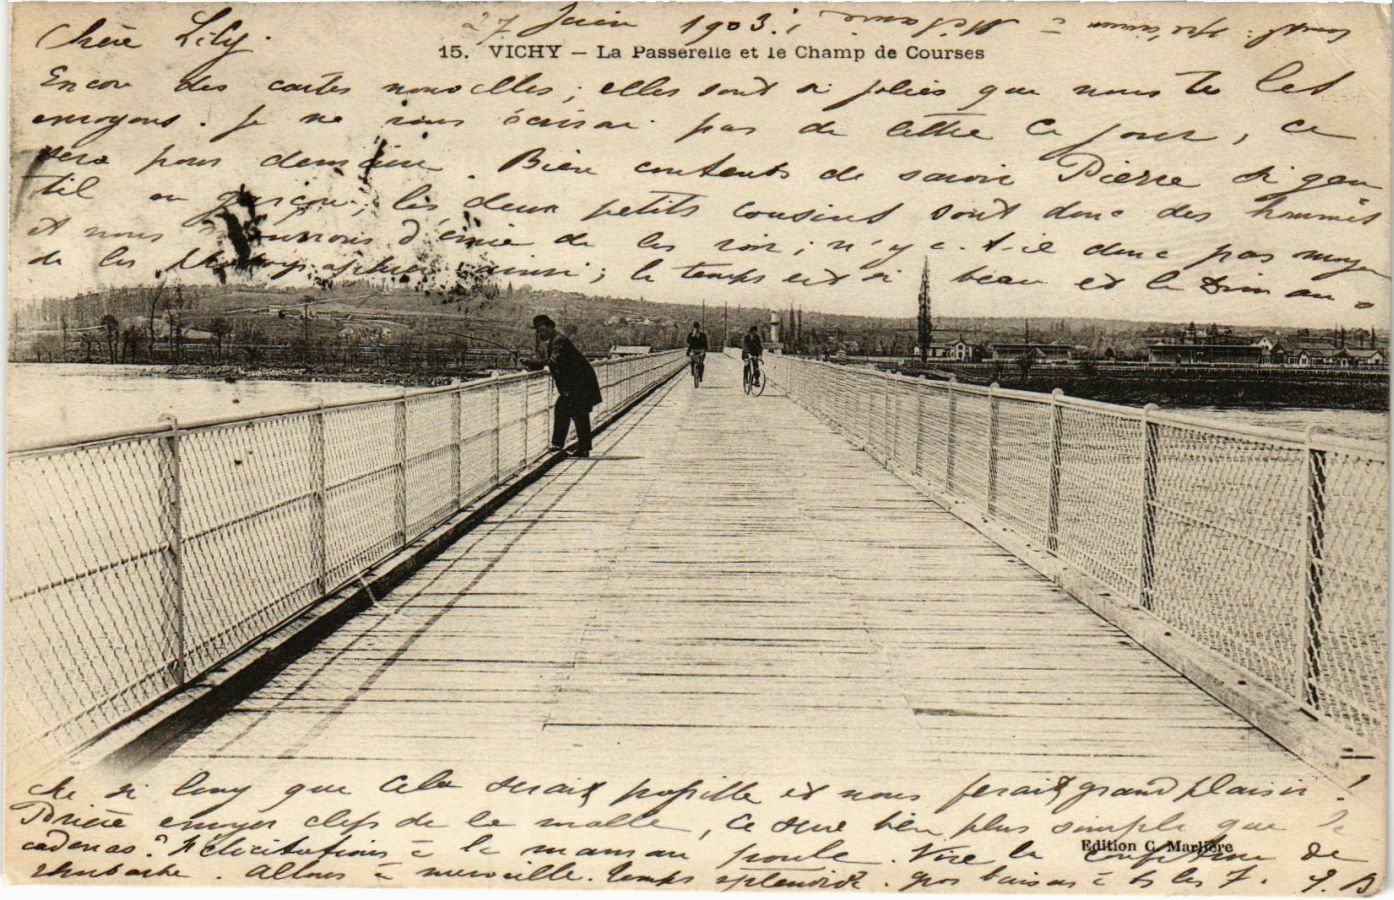 27 Juin 1903.
Chère Lily.
15. VICHY — La Passerelle et le Champ de Courses
Encore des cartes nouvelles; elles sont si jolies que nous te les
envoyons. Je ne vous écrirai pas de lettre ce jour, ce
sera pour demain. Bien contents de savoir Pierre si gen
til en garçon; les deux petits cousins sont donc des hommes
et nous mourons d'envie de les voir; n'y a-t-il donc pas moyen
de les photographier ainsi; le temps est si beau et le Diman=
che si long que cela serait possible et nous ferait grand plaisir!
Prière envoyer clefs de la malle, ce sera bien plus simple que le
cadenas? Félicitations à la maman poule. Vive la confiture de
rhubarbe. Allons à merveille. Temps splendide. Gros baisers à ts les 7. J. B
Edition C. Marlière